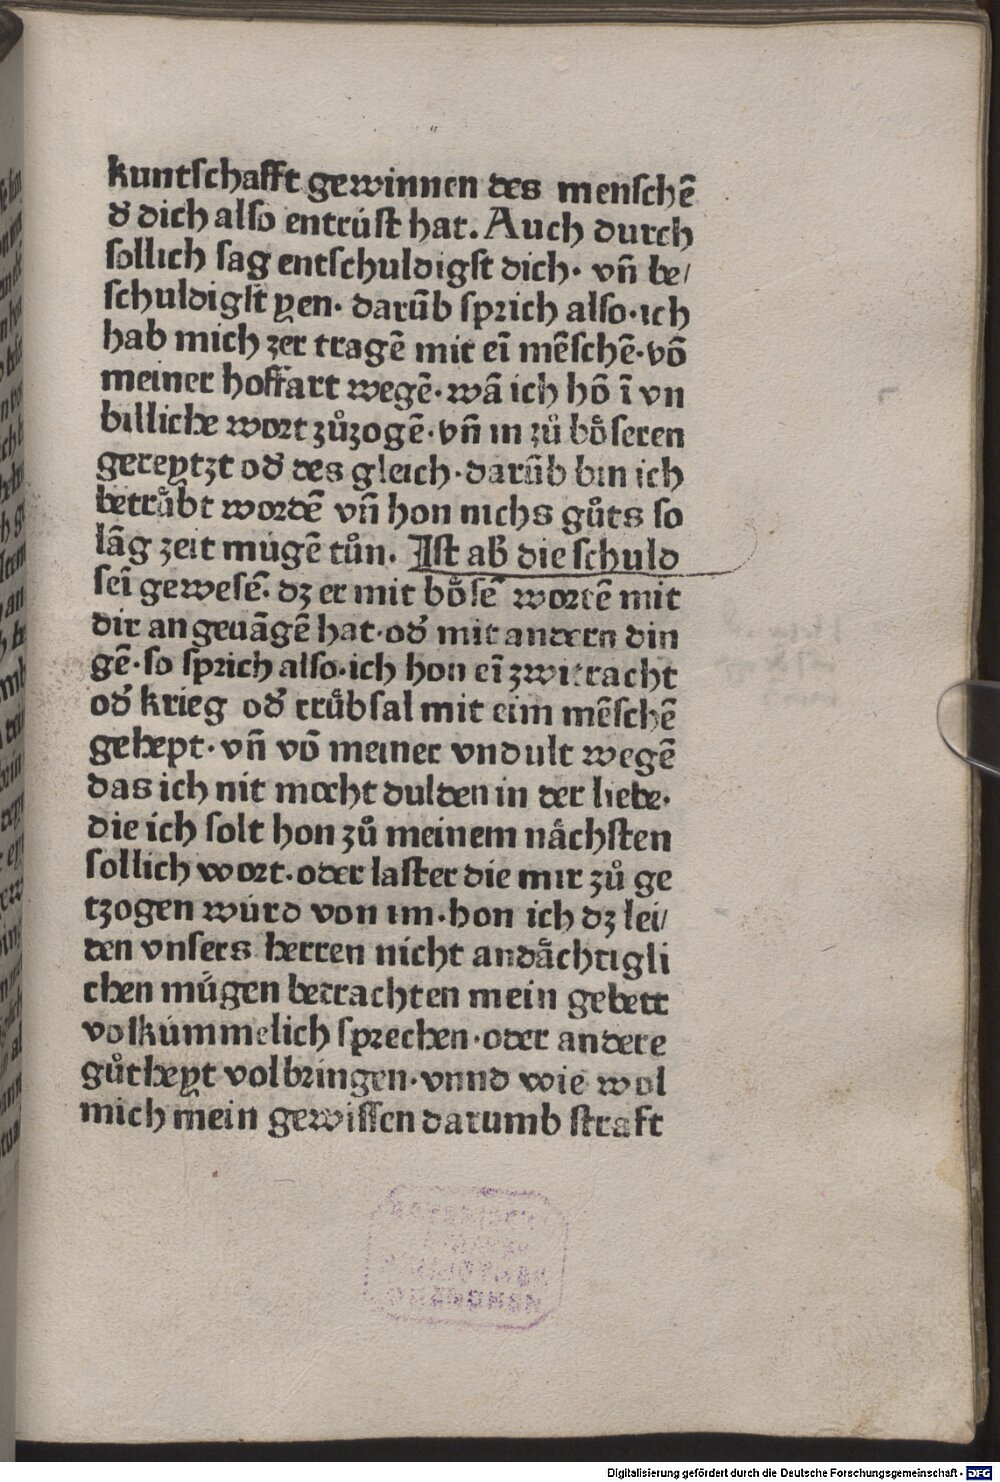 kuntſchafft gewinnen des menſchē
dͤ dich alſo entrúſt hat. Auch durch
ſollich ſag entſchuldigſt dich· vn̄ be/
ſchuldigſt yen· darūb ſprich alſo·ich
hab mich zer tragē mit eī mēſchē·vō
meiner hoffart wegē·wā ich hō ī vn
billiche wort zůzogē·vn̄ in zů boͤſeren
gereytzt od̓ des gleich·darūb bin ich
betruͤbt wordē vn̄ hon nichs gůts ſo
lāg zeit múgē tůn. Iſt ab̓ die ſchuld
ſeī geweſē· dz er mit boͤſē wortē mit
dir angeuāgē hat·od̓ mit andern din
gē·ſo ſprich alſo·ich hon eī zwitracht
od̓ krieg od̓ truͤbſal mit eim mēſchē
gehept·vn̄ vō meiner vndult wegē
das ich nit mocht dulden in der liebe·
die ich ſolt hon zů meinem naͤchſten
ſollich wort·oder laſter die mir zů ge
tzogen wúrd von im·hon ich dz lei/
den vnſers herren nicht andaͤchtigli
chen muͤgen betrachten mein gebett
volkúmmelich ſprechen·oder andere
gůtheyt volbringen·vnnd wie wol
mich mein gewiſſen darumb ſtraft
Digitalisierung gefördert durch die Deutsche Forschungsgemeinschaft - DFG